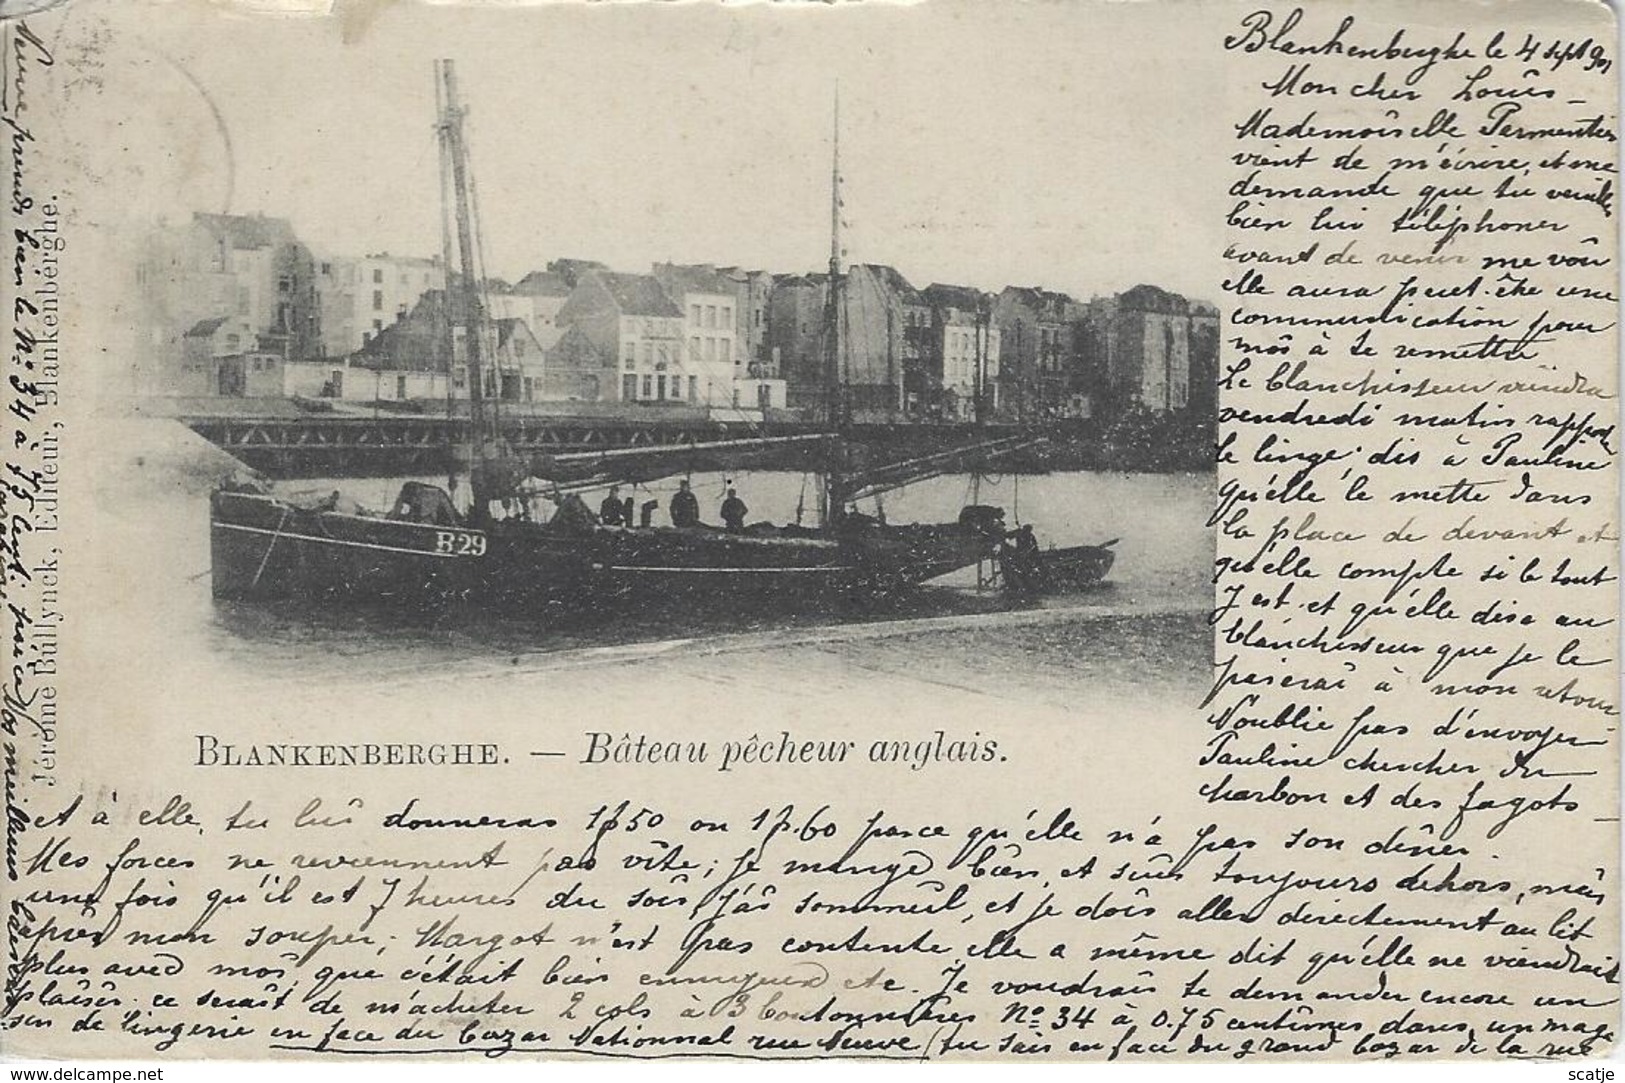 Blankenberghe le 4 sept 901
Mon cher Louis –
Mademoiselle Parmentier
vient de m'écrire, et me
demande que tu veuilles
bien lui téléphoner
avant de venir me voir
elle aura peut-être une
communication pour
moi à te remettre
Le blanchisseur viendra
vendredi matin rapporter
le linge; dis à Pauline
qu'elle le mette dans
la place de devant et
qu'elle compte si le tout
y est et qu'elle dise au
blanchisseur que je le
paierai à mon retour
N'oublie pas d'envoyer
Pauline chercher du
charbon et des fagots –
B29
BLANKENBERGHE. — Bâteau pêcheur anglais.
Jérôme Bullynck, Editeur, Blankenberghe.
et à elle, tu lui donneras 1f50 ou 1f.60 parce qu'elle n'a pas son dîner.
Mes forces ne reviennent pas vite; je mange bien, et suis toujours dehors, mais
une fois qu'il est 7 heures du soir, j'ai sommeil, et je dois aller directement au lit
après mon souper; Margot n'est pas contente, elle a même dit qu'elle ne viendrait
plus avec moi, que c'était bien ennuyeux etc. Je voudrais te demander encore un
plaisir. ce serait de m'acheter 2 cols à 3 boutonnières No 34 à 0.75 centimes dans un maga
sin de lingerie en face du bazar Nationnal rue Neuve (tu sais en face du grand bazar de la rue
Neuve prends bien le No 34 à 75 cent. pièce
Nos meilleurs baisers
scatje